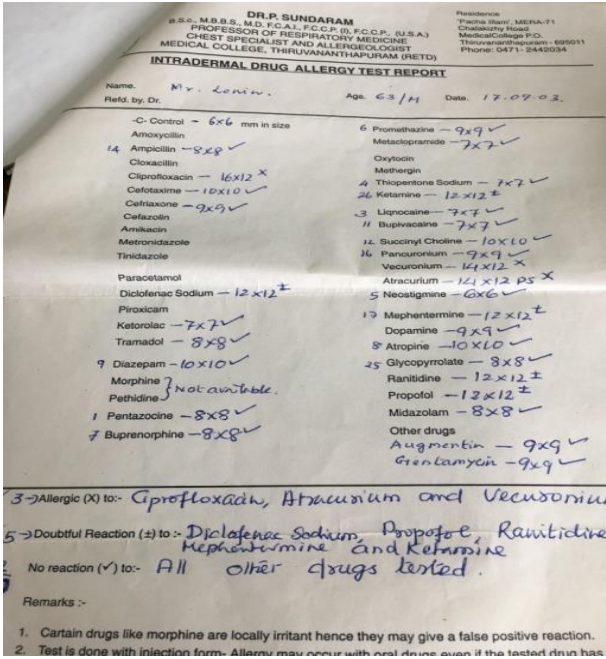 DR.P. SUNDARAM
B.Sc., M.B.B.S., M.D. F.C.A.I., F.C.C.P. (I), F.C.C.P., (U.S.A.)
PROFESSOR OF RESPIRATORY MEDICINE
CHEST SPECIALIST AND ALLERGEOLOGIST
MEDICAL COLLEGE, THIRUVANANTHAPURAM (RETD)
Residence
'Pacha Illam', MERA-71
Chalakizhy Road
MedicalCollege P.O.
Thiruvananthapuram - 695011
Phone: 0471- 2442034
INTRADERMAL DRUG ALLERGY TEST REPORT
Name. Mr. Lenin. Age. 63/M Date. 17.09.03.
Refd. by Dr.
-C- Control - 6x6 mm in size
Amoxycillin
14 Ampicillin - 8x8 ✓
Cloxacillin
Cliprofloxacin - 16x12 X
Cefotaxime - 10x10 ✓
Cefriaxone - 9x9 ✓
Cefazolin
Amikacin
Metronidazole
Tinidazole
Paracetamol
Diclofenac Sodium - 12x12 ±
Piroxicam
Ketorolac - 7x7 ✓
Tramadol - 8x8 ✓
9 Diazepam - 10x10 ✓
Morphine
Pethidine } Not available.
1 Pentazocine - 8x8 ✓
7 Buprenorphine - 8x8 ✓
6 Promethazine - 9x9 ✓
Metaclopramide - 7x7 ✓
Oxytocin
Methergin
4 Thiopentone Sodium - 7x7 ✓
26 Ketamine - 12x12 ±
3 Liqnocaine - 7x7 ✓
11 Bupivacaine - 7x7 ✓
12 Succinyl Choline - 10x10 ✓
16 Pancuronium - 9x9 ✓
Vecuronium - 14x12 X
Atracurium - 14x12 PS X
5 Neostigmine - 6x6 ✓
17 Mephentermine - 12x12 ±
Dopamine - 9x9 ✓
8 Atropine - 10x10 ✓
25 Glycopyrrolate - 8x8 ✓
Ranitidine - 12x12 ±
Propofol - 12x12 ±
Midazolam - 8x8 ✓
Other drugs
Augmentin - 9x9 ✓
Gentamycin - 9x9 ✓
3→Allergic (X) to:- Ciprofloxacin, Atracurium and Vecuronium
5→Doubtful Reaction (±) to:- Diclofenac Sodium, Propofol, Ranitidine
Mephentermine and Ketamine
No reaction (✓) to:- All other drugs tested.
Remarks :-
1. Cartain drugs like morphine are locally irritant hence they may give a false positive reaction.
2. Test is done with injection form- Allergy may occur with oral drugs even if the tested drug has